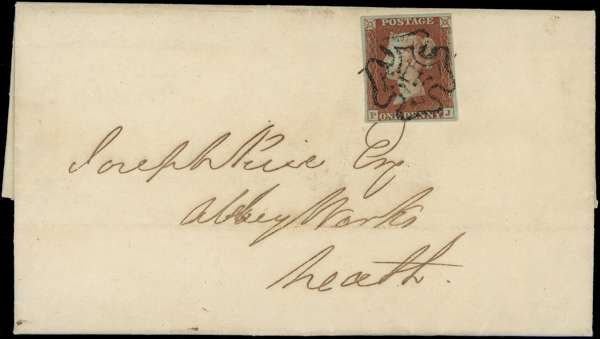 POSTAGE
P J
ONE PENNY
Joseph Price Esq
Abbey Works
Neath.